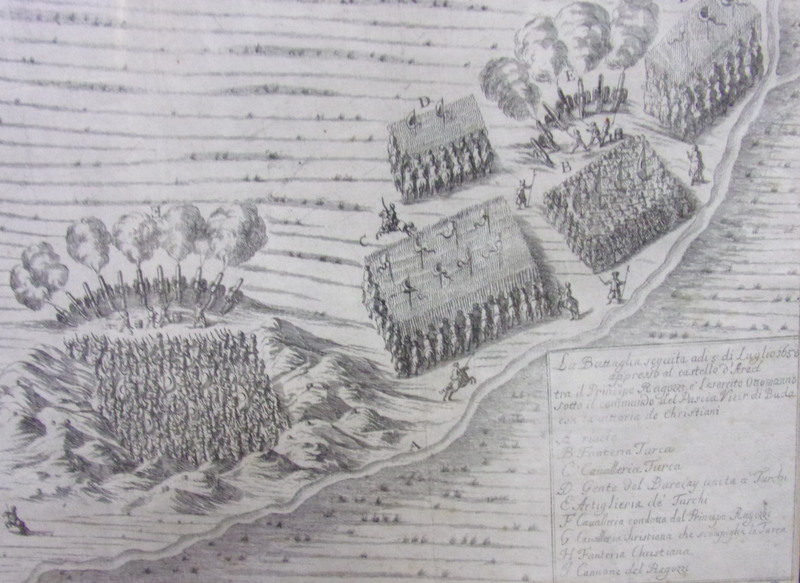 D
E
B
C
La Battaglia seguita adi 5 di Luglio 1658
appresso al castello d'Arad
tra il Principe Ragozzi e l'esercito Ottomanno
sotto il comando del Pascia Visir di Buda
con la vittoria de Christiani
B Fanteria Turca
C Cavalleria Turca
D Gente del unita a Turchi
E Artiglieria de' Turchi
F Cavalleria condotta dal Principe Ragozzi
G Cavalleria Christiana che la Turca
H Fanteria Christiana
I Cannone del Ragozzi